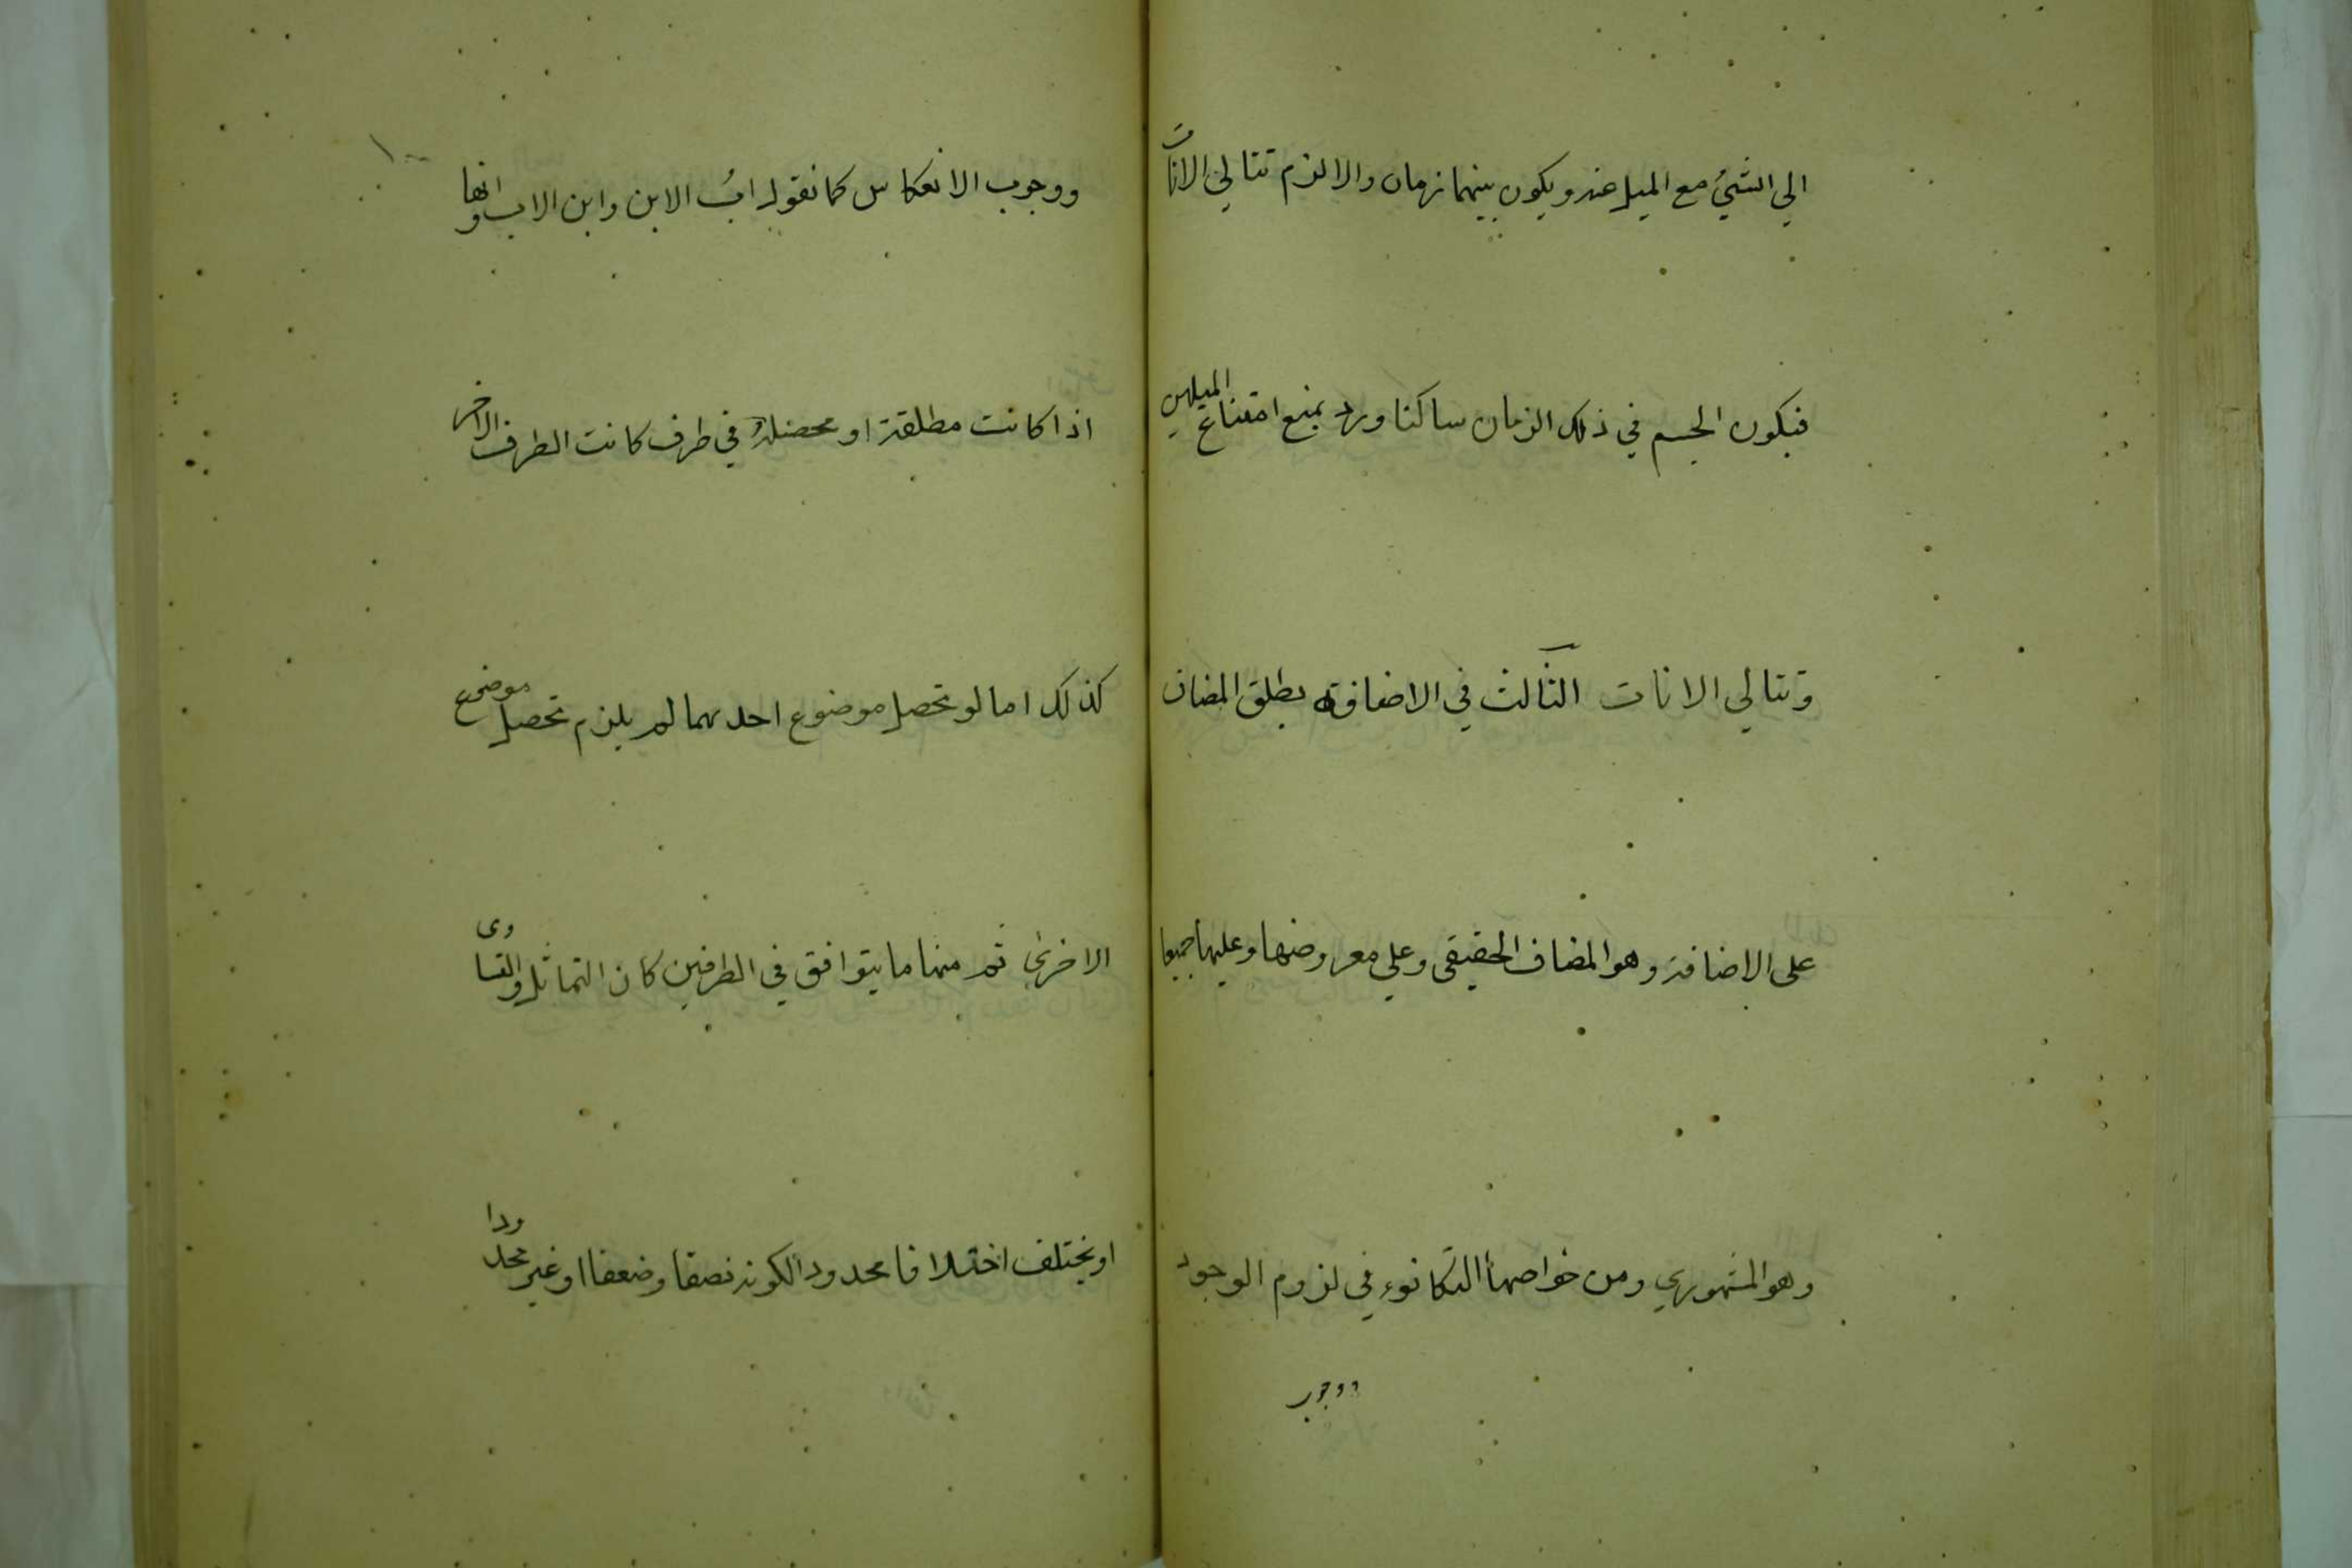 الي الشئ مع الميل عنه ويكون بينهما زمان والا لزم تتالي الانات
فيكون الجسم في ذلك الزمان ساكنا ورد بمنع امتناع الميلين
وتتالي الانات الثالث في الاضافة يطلق المضاف
على الاضافة وهو المضاف الحقيقى وعلي معروضها وعليهما جميعا
وهو المشهوري ومن خواصها التكافوء في لزوم الوجود
ووجوب
١٠٠
ووجوب الانعكاس كما نقول ابُ الابن وابن الاب وانها
اذا كانت مطلقة او محصلة في طرف كانت الطرف الاخر
كذلك اما لو تحصل موضوع احدهما لم يلزم تحصل موضوع
الاخرىٰ ثم منها ما يتوافق في الطرفين كان التماثل والتساوى
او يختلف اختلافا محدودا لكونه نصفا وضعفا او غير محدودا